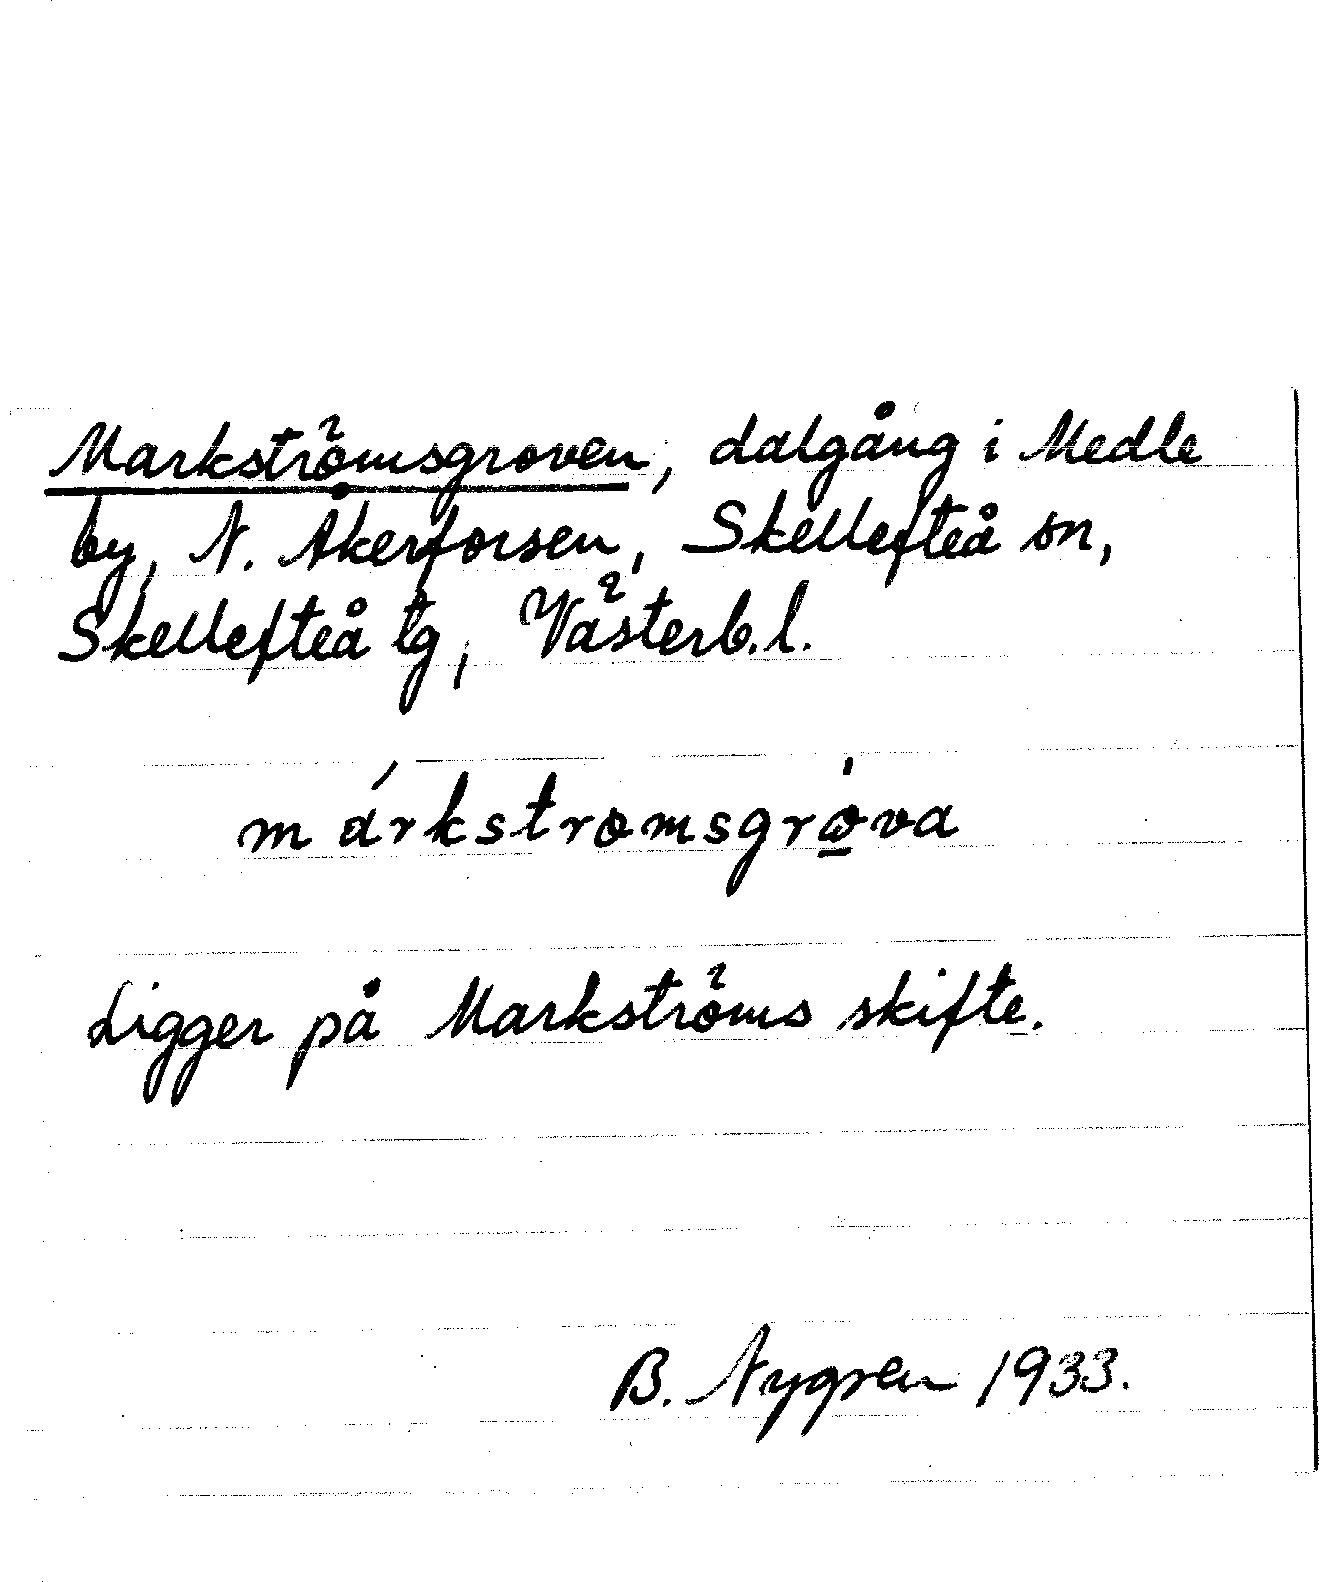 Markströmsgroven, dalgång i Medle
by, N. Åkerforsen, Skellefteå sn,
Skellefteå tg, Västerb.l.
márkstromsgrò̱va
Ligger på Markströms skifte.
B. Nygren 1933.